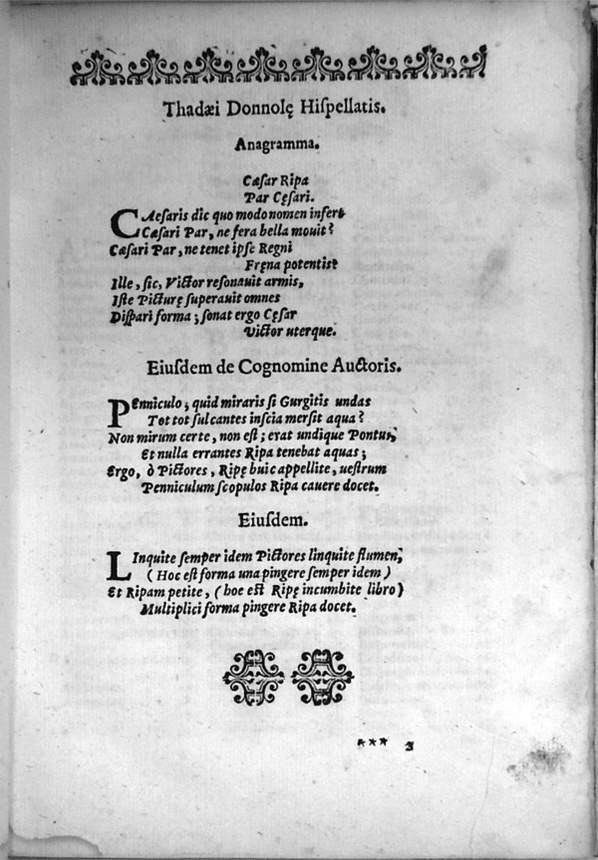 Thadæi Donnolę Hiſpellatis.
Anagramma.
Cæſar Ripa
Par Cęſari.
CAeſaris dic quo modo nomen infert
Cæſari Par, ne fera bella mouit?
Cæſari Par, ne tenet ipſe Regni
Fręna potentis?
Ille, ſic, Victor reſonauit armis,
Iſte Picturę ſuperauit omnes
Diſpari forma; ſonat ergo Cęſar
Victor uterque.
Eiuſdem de Cognomine Auctoris.
PEnniculo; quid miraris ſi Gurgitis undas
Tot tot ſulcantes inſcia merſit aqua?
Non mirum certe, non eſt; erat undique Pontus,
Et nulla errantes Ripa tenebat aquas;
Ergo, ò Pictores, Ripę huic appellite, ueſtrum
Penniculum ſcopulos Ripa cauere docet.
Eiuſdem.
LInquite ſemper idem Pictores linquite flumen,
(Hoc eſt forma una pingere ſemper idem)
Et Ripam petite, (hoe eſt Ripę incumbite libro)
Multiplici forma pingere Ripa docet.
*** 3